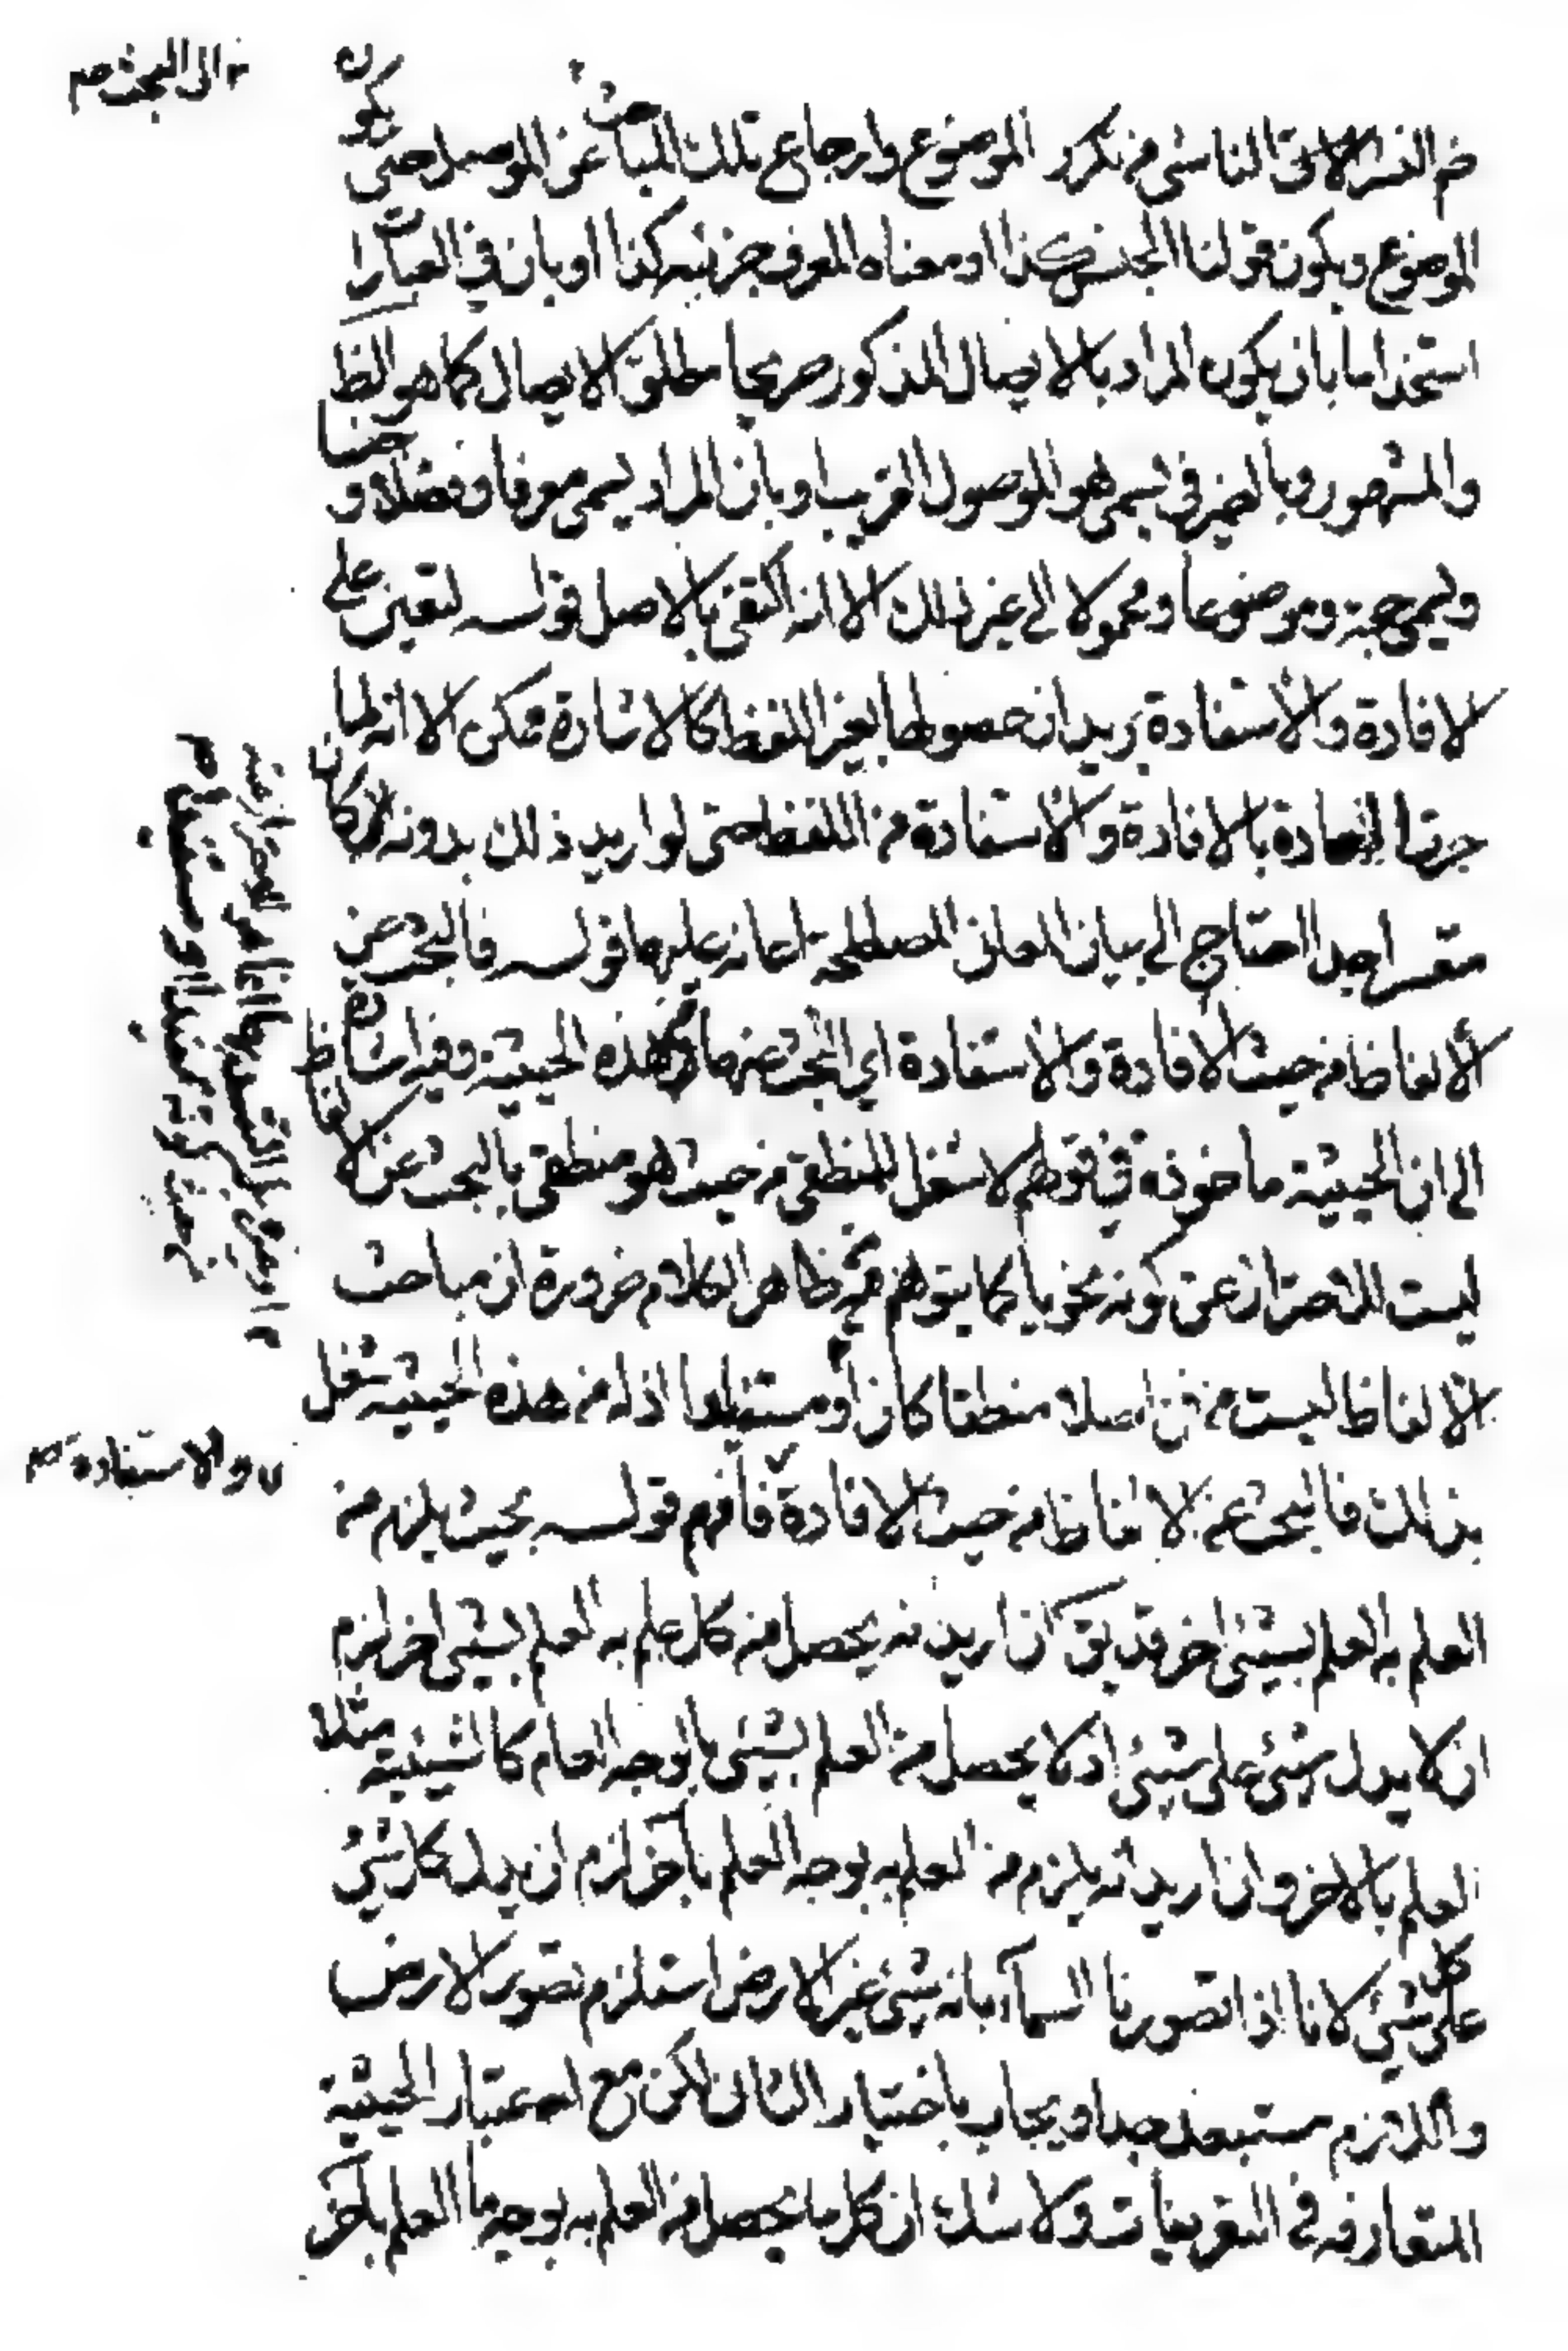 ثم الغير اللائق الناشى من تكرر الموضوع وارجاع تلك المباحث عن الموصل حتى يكون
الموضوع ويكون قولنا الجنس كذا او معناه المعرف جزئيه كذا او بان في العبارة
استخداما بان يكون المراد بالايصال المذكور صريحا مطلق الايصال كما هو الظ
والمشهور وبالضمير في يسمى هو الموصول القريب او بان المراد يسمى معرفا وفصلا وجنسا
ويسمى حجة وموضوعا ومحمولا الى غير ذلك الا انه اكتفى بالاصل قولـه لتعين على
الافادة والاستفادة يريد ان حصولها بغير اللفظ كالاشارة ممكن الا انه لما
جرت العادة بالافادة والاستفادة من اللفظ حتى لو اريد ذلك بدونه لكان
متعسرا جدا احتاج الى بيان المعانى المصطلحة اعانة عليهما قولـه فالبحث عن
الالفاظ من حيث الافادة والاستفادة اي البحث عنها من هذه الحيثية وفيه اشارة
الى ان الحيثية ماخوذة في قولهم لا شغل للمنطقى من حيث هو منطقى بالبحث عن الالفاظ
ليست للاحتراز عن كونه نحويا كما يتوهم من ظاهر الكلام ضرورة ان مباحث
الالفاظ ليست من فن اصلا منطقا كان او اذ له من هذه الحيثية شغل
بذلك فالبحث عن الالفاظ من حيث الافادة فافهم قولـه بحيث يلزم من
العلم به العلم بشيئ اخر قد يق ان اريد انه يحصل من كل علم به العلم بشيئ اخر لزم
ان لا يدل شيئ على شيئ اذ لا يحصل من العلم بشيئ بالوجه العام كالشيئية مثلا
العلم بالاخر وان اريد انه يلزم من العلم به بوجه العلم بآخر لزم ان يدل كل شيئ
على كل شيئ لانا اذا تصورنا السمآء بانه شيئ غير الارض استلزم تصور الارض
واللازم مستبعد جدا ويجاب باختيار الثانى لكن مع اعتبار الحيثية
المتعارفه فى التعريفات ولا شك ان كل ما يحصل من العلم به بوجه ما العلم بآخر
الى البحث صح
والاستفادة صح